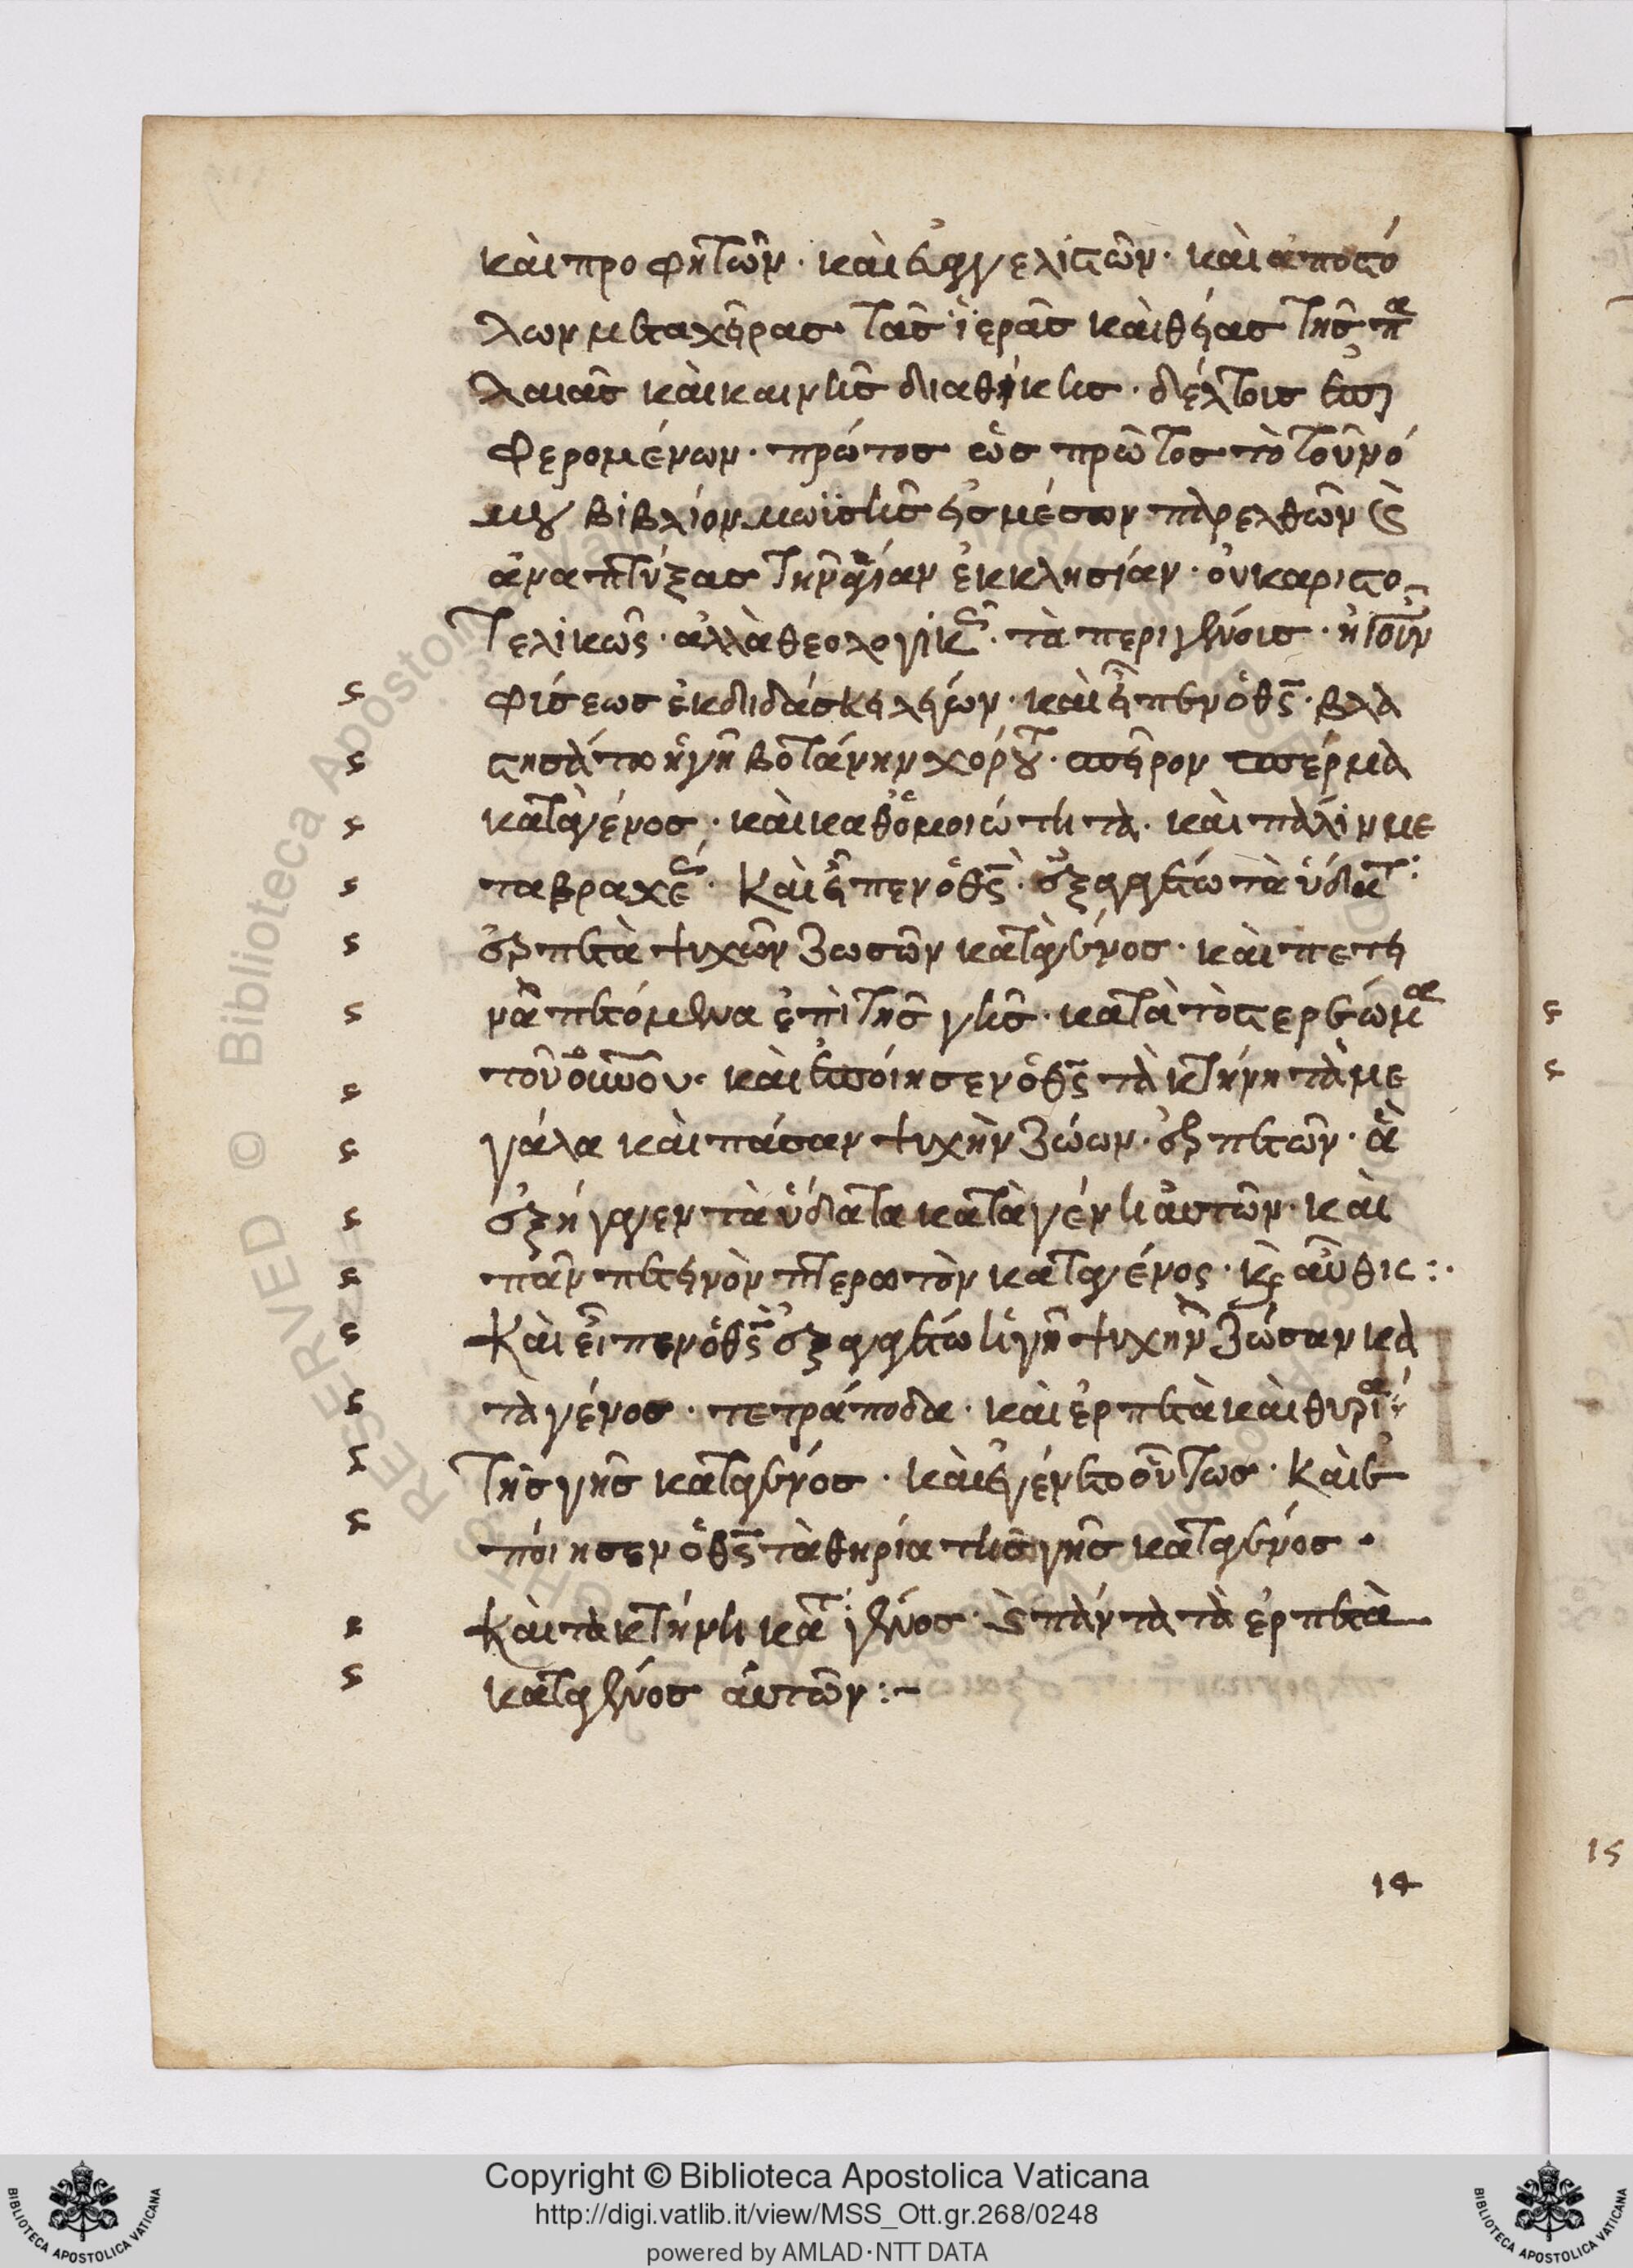 καὶ προφητῶν · καὶ εὐαγγελιστῶν · καὶ ἀποστό
λων μεταχεῖρας τὰς ἱερὰς καὶ θείας τῆς πα
λαιᾶς καὶ καινῆς διαθήκης · δέλτοις ἐπι
φερομένων · πρώτος ὡς πρῶτος τὸ τοῦ νό
μου βιβλίον μωϊσῆς εἰς μέσον παρελθῶν καὶ
ἀναπτύξας τὴν ἁγίαν ἐκκλησίαν · οὐκ αριστο
τελικῶς · ἀλλὰ θεολογικῶς · τὰ περὶ γενέσεως · ἤτουν
φύσεως ἐκδιδάσκει λέγων · καὶ εἶπεν ὁ θς · βλα
στησάτω ἡ γῆ βοτάνην χόρτου · σπεῖρον σπέρμα
κατὰ γένος · καὶ καθ ὁμοιώτητα · καὶ πάλιν με
τα βραχέα · Καὶ εἶπεν ὁ θς · ἐξαγαγέτω τὰ ὕδατα :
ἑρπετὰ ψυχῶν ζωσῶν κατὰ γένος · καὶ πετει
νὰ πετόμενα ἐπὶ τῆς γῆς · κατὰ τὸ στερέωμα
τοῦ οὐνοῦ · καὶ ἐποίησεν ὁ θς τὰ κήτη τὰ με
γάλα καὶ πάσαν ψυχὴν ζώων · ἑρπετῶν · ἃ
ἐξήγαγεν τὰ ὕδατα κατὰ γένη αὐτῶν · καὶ
πᾶν πετεινὸν πτερωτὸν κατὰ γένος · κ αὖθις :·
Καὶ εἶπεν ὁ θς ἐξαγαγέτω ἡ γῆ ψυχὴν ζώσαν κα
τὰ γένος · τετράποδα · καὶ ἑρπετὰ καὶ θηρία
τῆς γῆς κατὰ γένος · καὶ ἐγένετο οὕτως · Καὶ ἐ
ποίησεν ὁ θς τὰ θηρία τῆς γῆς κατὰ γένος ·
Καὶ τὰ κτήνη κατὰ γένος · καὶ πάντα τὰ ἑρπετὰ
κατὰ γένος αὐτῶν : ~
14
15
Copyright © Biblioteca Apostolica Vaticana
http://digi.vatlib.it/view/MSS_Ott.gr.268/0248
powered by AMLAD·NTT DATA